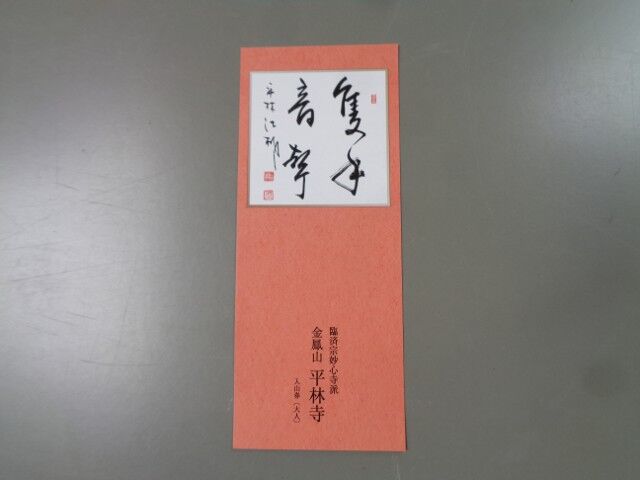 隻手
音聲
平林
臨済宗妙心寺派
金鳳山 平林寺
入山券（大人）